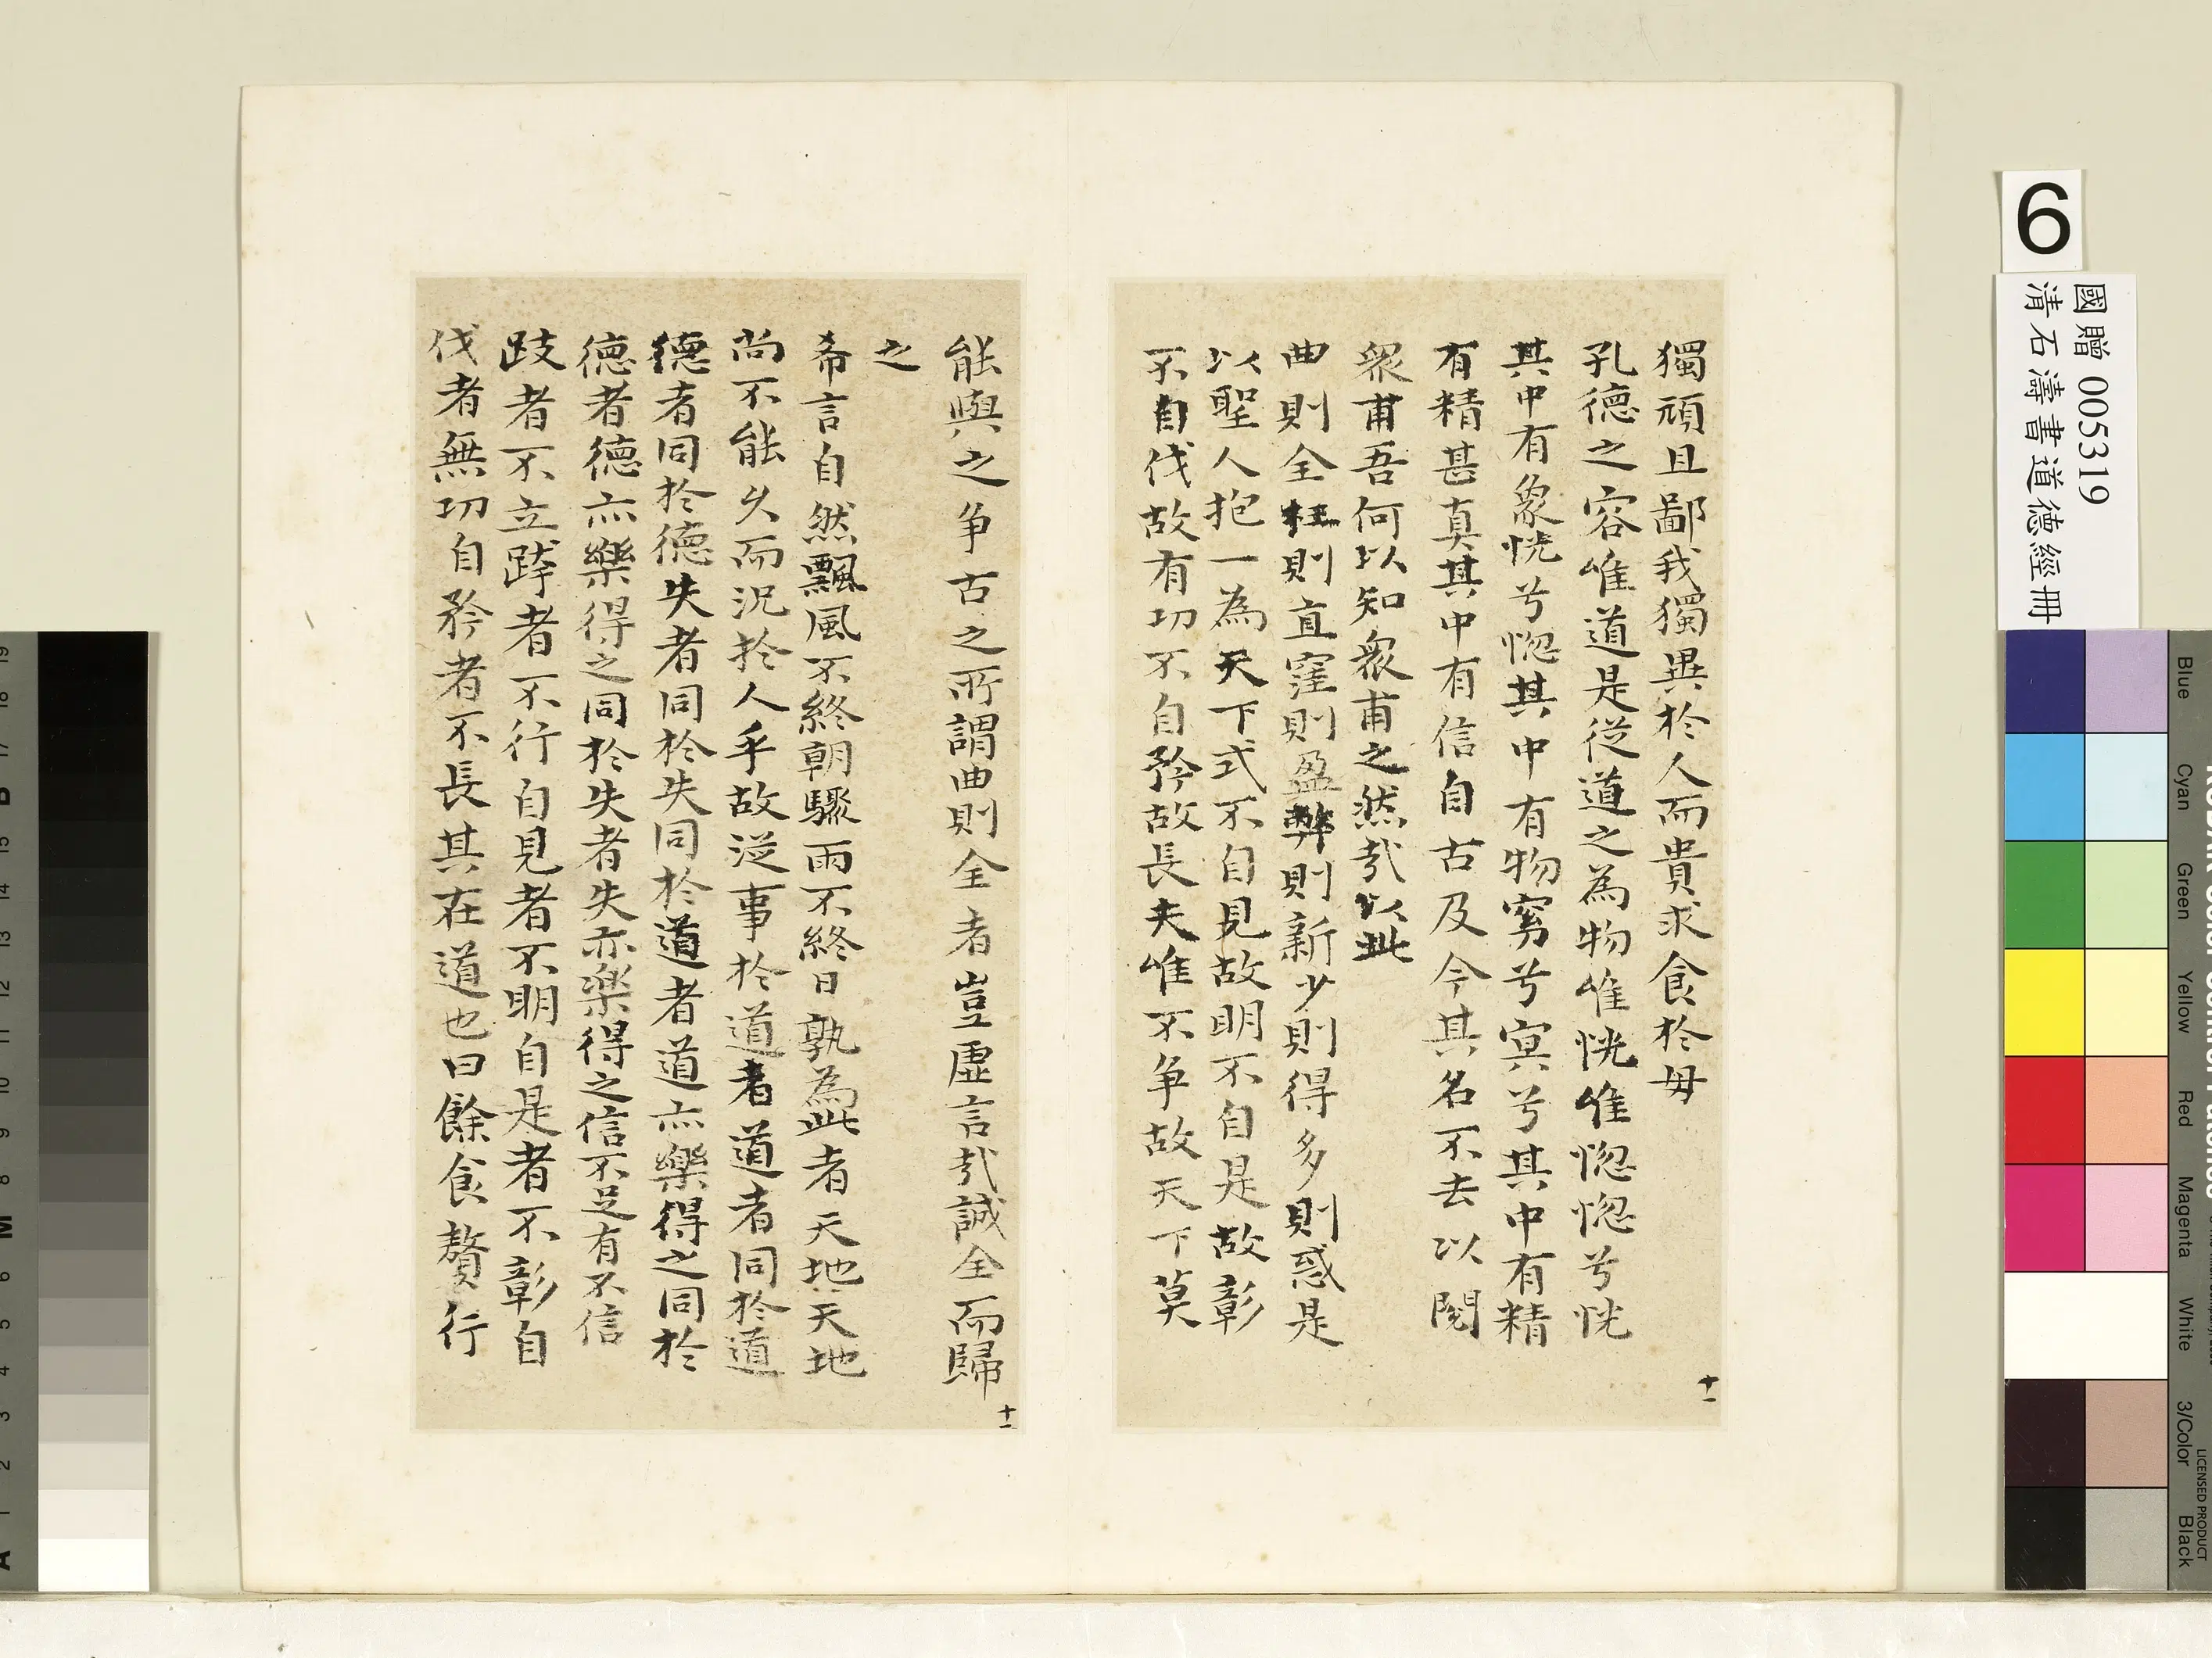 獨頑且鄙我獨異於人而貴求食於母
孔德之容唯道是從道之為物唯恍唯惚惚兮恍
其中有象恍兮惚其中有物窈兮冥兮其中有精
有精甚真其中有信自古及今其名不去以閱
衆甫吾何以知衆甫之然哉以此
曲則全枉則直窪則盈弊則新少則得多則惑是
以聖人抱一為天下式不自見故明不自是故彰
不自伐故有功不自矜故長夫唯不争故天下莫
十一
能與之争古之所謂曲則全者豈虛言哉誠全而歸
之
希言自然飄風不終朝驟雨不終日孰為此者天地天地
尚不能久而況於人乎故從事於道者道者同於道
德者同於德失者同於失同於道者道亦樂得之同於
德者德亦樂得之同於失者失亦樂得之信不足有不信
跂者不立跨者不行自見者不明自是者不彰自
伐者無功自矜者不長其在道也曰餘食贅行
十一
6
國贈 005319
清石濤書道德經冊
Blue
Cyan
Green
Yellow
Red
Magenta
White
3/Color
Black
LICENSED PRODUCT
19
18
17
B
16
15
14
13
12
11
10
9
8
M
7
6
5
4
3
2
1
A